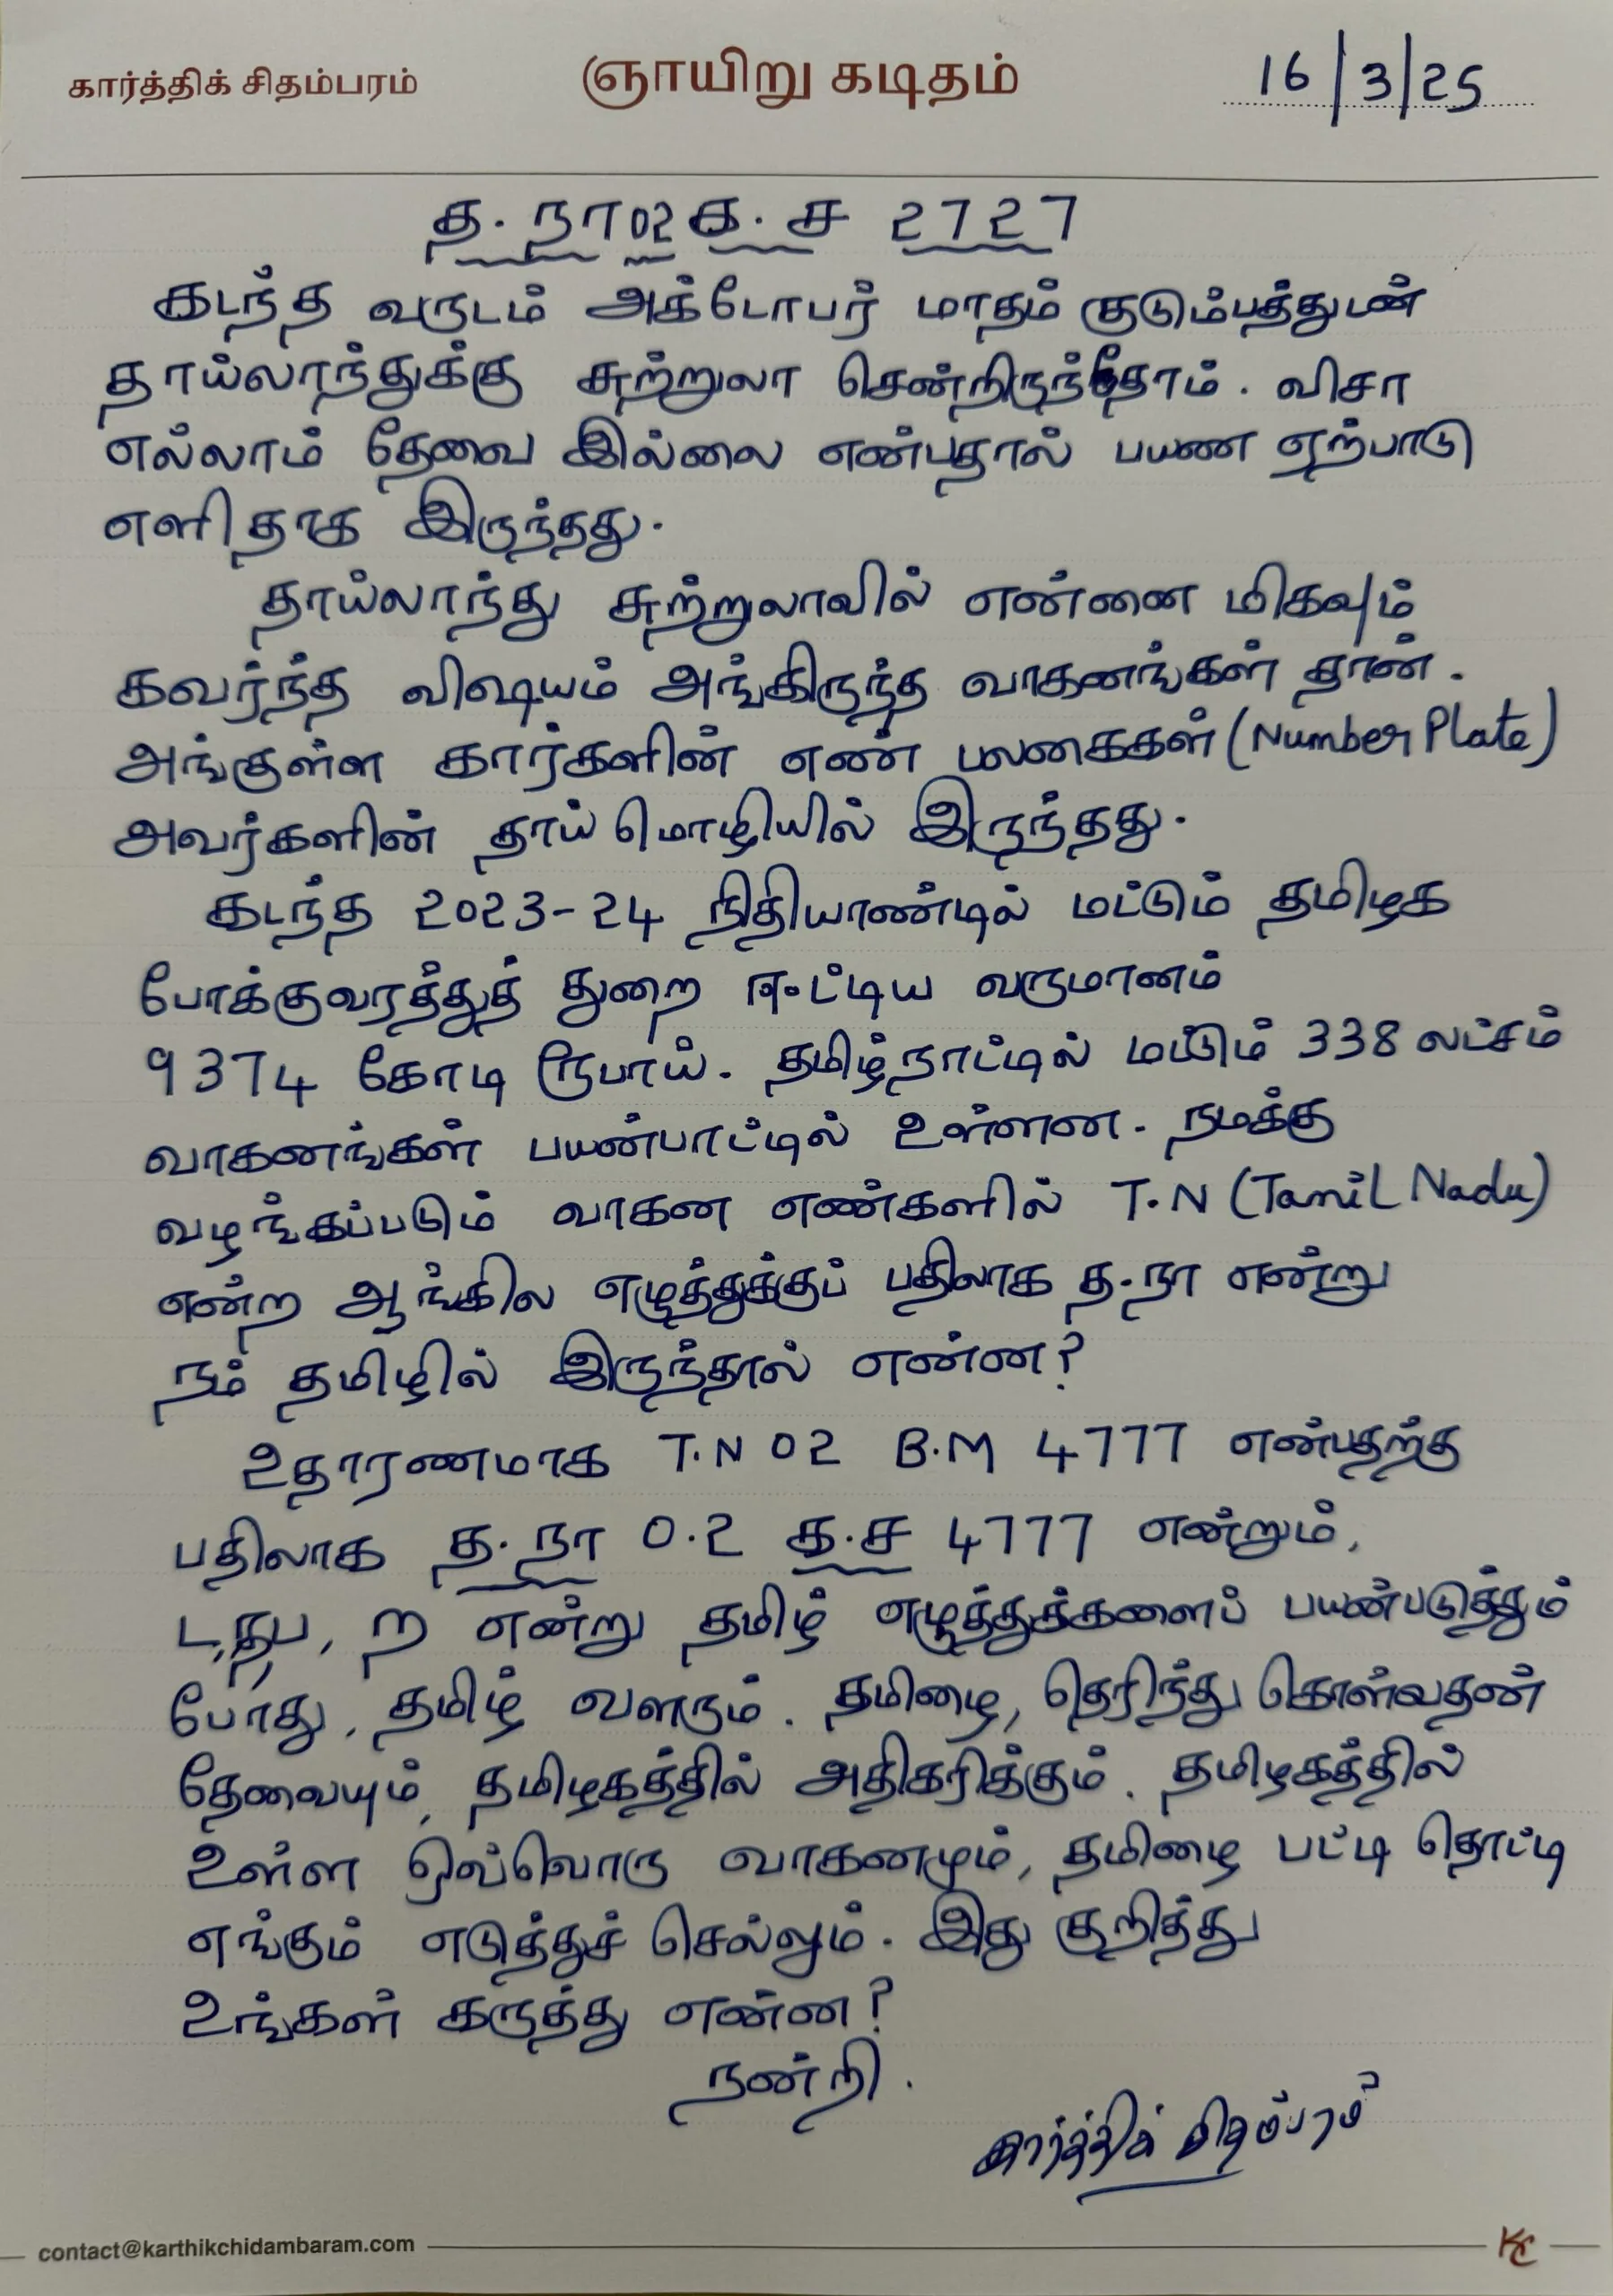 கார்த்திக் சிதம்பரம் ஞாயிறு கடிதம் 16/3/25
த. நா 02 க. ச 2727
கடந்த வருடம் அக்டோபர் மாதம் குடும்பத்துடன்
தாய்லாந்துக்கு சுற்றுலா சென்றிருந்தோம். விசா
எல்லாம் தேவை இல்லை என்பதால் பயண ஏற்பாடு
எளிதாக இருந்தது.
தாய்லாந்து சுற்றுலாவில் என்னை மிகவும்
கவர்ந்த விஷயம் அங்கிருந்த வாகனங்கள் தான்.
அங்குள்ள கார்களின் எண் பலகைகள் (Number Plate)
அவர்களின் தாய் மொழியில் இருந்தது.
கடந்த 2023-24 நிதியாண்டில் மட்டும் தமிழக
போக்குவரத்துத் துறை ஈட்டிய வருமானம்
9374 கோடி ரூபாய். தமிழ்நாட்டில் மட்டும் 338 லட்சம்
வாகனங்கள் பயன்பாட்டில் உள்ளன. நமக்கு
வழங்கப்படும் வாகன எண்களில் T.N (Tamil Nadu)
என்ற ஆங்கில எழுத்துக்குப் பதிலாக த.நா என்று
நம் தமிழில் இருந்தால் என்ன?
உதாரணமாக T.N 02 B.M 4777 என்பதற்கு
பதிலாக த. நா 0.2 க.ச 4777 என்றும்,
ட, த,ப, ற என்று தமிழ் எழுத்துக்களைப் பயன்படுத்தும்
போது, தமிழ் வளரும். தமிழை, தெரிந்து கொள்வதன்
தேவையும், தமிழகத்தில் அதிகரிக்கும். தமிழகத்தில்
உள்ள ஒவ்வொரு வாகனமும், தமிழை பட்டி தொட்டி
எங்கும் எடுத்துச் செல்லும். இது குறித்து
உங்கள் கருத்து என்ன?
நன்றி.
கார்த்திக் சிதம்பரம்
contact@karthikchidambaram.com KC